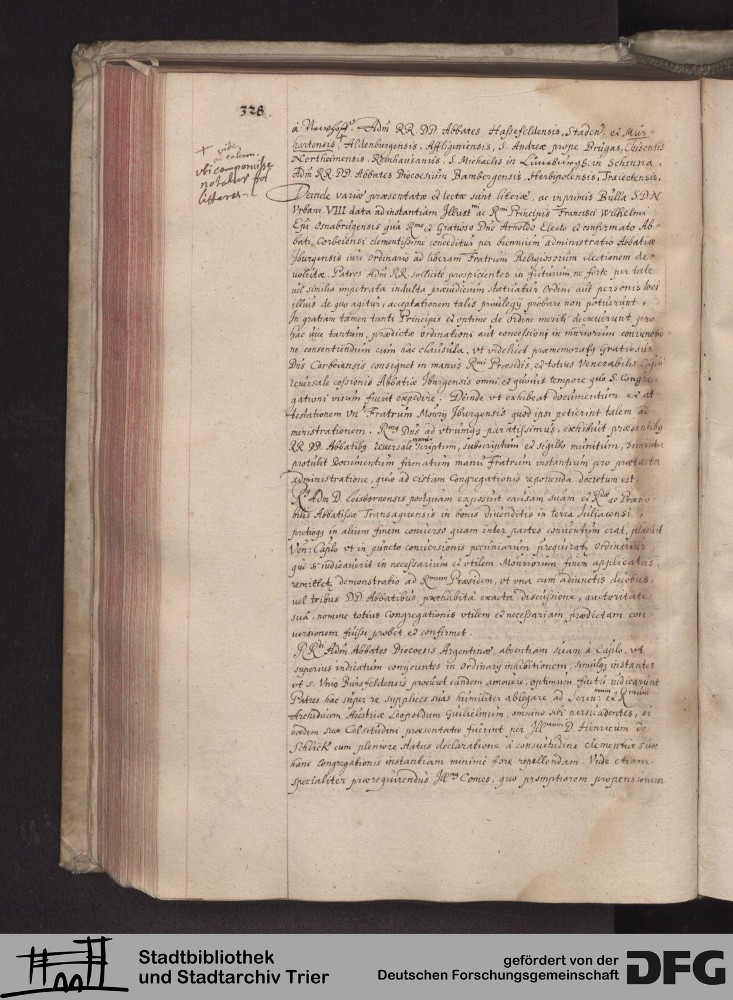 328
à Nuwhoff. Adm RR. DD. Abbates Haßefeldensis, Staden: et Mur-
hartensis, Aldenburgensis, Affligmiensis, S. Andreæ prope Brugas,
Northeimensis, Reinhausannis. S. Michaelis in in Schinna.
Adm RR. DD. Abbates Diocesium Bambergensis, Herbipolensis, Traiectensis.
+ vide
Deinde variæ præsentatæ et lectæ sunt literæ, ac inprimis Bulla S.D.N.
Urbani VIII data ad instantiam Illustmi ac Rmi Principis Francisci Wilhelmi
Epi Osnabrugensis qua Rmo et Gratioso Dno Arnoldo Electo et confirmato Ab-
bati Corbeiensi clementissime conceditur per biennium administratio Abbatiæ
Iburgensis iure ordinario ad liberam Fratrum Religiosorum electionem de-
uolutæ. Patres Adm RR. sollicitè prospicientes in futurum, ne forte per talé
vel similia impetrata indulta præiudicium statuatur Ordini aut personis loci
illius de quo agitur, acceptationem talis priuilegij probare non potuerunt.
In gratiam tamen tanti Principis et optime de Ordini meriti decreuerunt pro
hac vice tantum, prædictæ ordinationi aut concessioni
ne consentiendum cum hac clausula, vt videlicet præmemoratus Gratiosus
Dns Corbeiensis consignet in manus Rmi Præsidis, et totius Venerabilis Capli
reuersale cessionis Abbatiæ Iburgensis omni et quouis tempore quo S. Congre-
gationi visum fuerit expedire. Deinde vt exhibeat documentum et at
testationem Vn. Fratrum Monrij Iburgensis quod ipsi petierint talem ad
ministrationem. Rmus Dns ad vtrumque paratissimus, exhibuit præsentibus
RR DD. Abbatibus reuersale manu scriptum, subscriptum et sigillo munitum,
protulit Documentum firmatum manu Fratrum instantium pro præfacta
administratione, quæ ad cistam Congregationis reponenda decretum est.
Rs Adm D. Leisbornensis postquam exposuit causam suam et ac Præno-
bilis Abbatissæ Transaquensis in bonis diuendetis in terra Iuliacensi,
in alium finem conuerso quam inter partes conuentum erat, placuit
Ven: Caplo vt in puncto conuersionis pecuniarum Ordinarius
qui si iudicauerit in necessarium et vtilem Monriorum finem applicatas,
demonstratio ad Rmum Præsidem, vt vna cum adiunctis duobus,
vel tribus DD Abbatibus, præhabita exacta discussione, autoritate
sua, nomine totius Congregationis vtilem et necessariam prædictam con-
uersionem fuisse probet et confirmet.
RRdi Adm. Abbates Diocesis Argentinæ, absentiam suam à Caplo, vt
superius indicatum conijcientes in Ordinarij inhibitionem, simulque instantes
vt S. Vnio Bursfeldensis procuret eandem amouere, optimum factu iudicarunt
Patres hac super re supplices suas humiliter ablegare ad Seren:mum et Rmum
Archiducem Austriæ Leopoldum Guilielmum, omnino sibi persuadentes, si
eædem suæ Celsitudini præsentatæ fuerint per Illmum D. Henricum de
Schlick cum pleniore status declaratione à consuetudine clementiæ suæ
hanc congregationis instantiam minimè fore repellendam. Vnde etiam
specialiter prærequirendus Illmus Comes, quo promptiorem propensionem
Stadtbibliothek
und Stadtarchiv Trier
gefördert von der
Deutschen Forschungsgemeinschaft
DFG